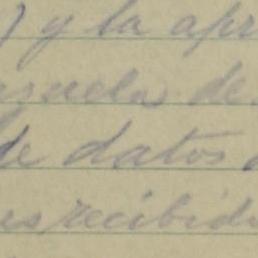 ) y la apr
suela de
de datos
recibid